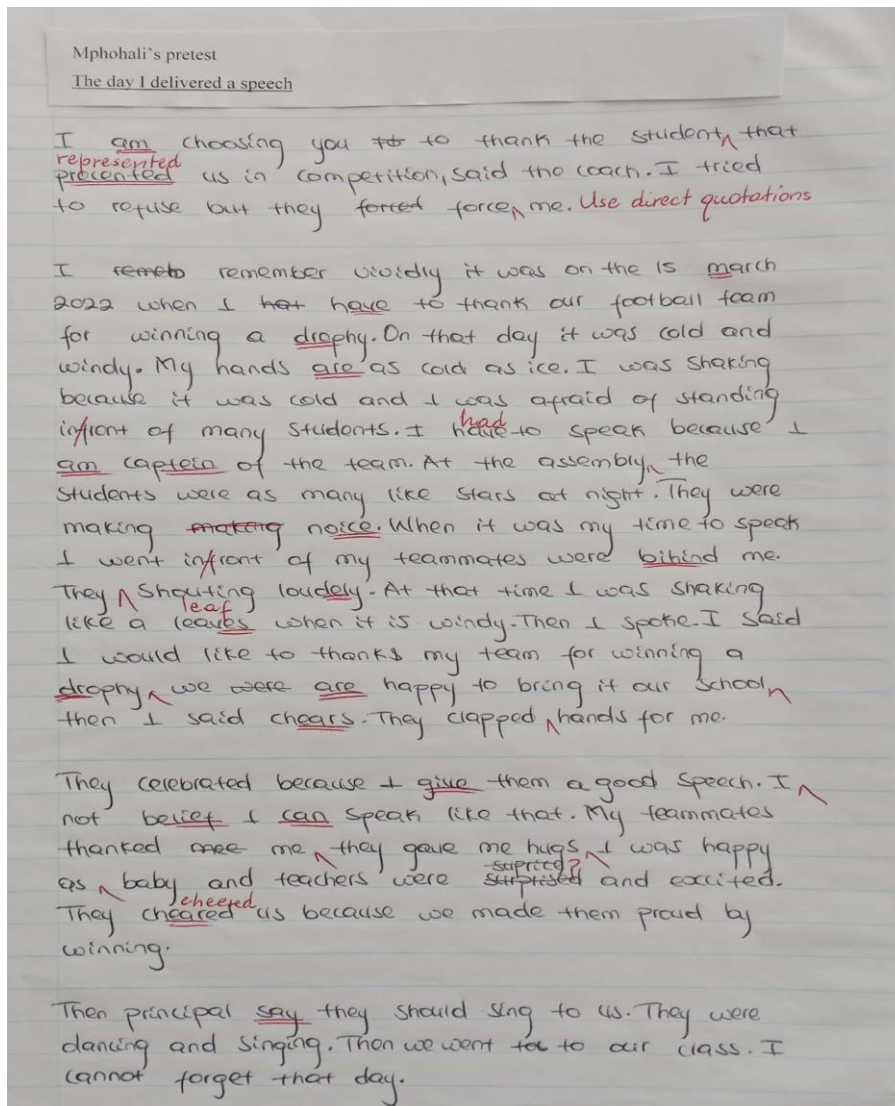 Mphohali's pretest
The day I delivered a speech
I am choosing you to to thank the student that
represented
precented us in competition, said the coach. I tried
to refuse but they forced force me. Use direct quotations
I remeto remember vividly it was on the 15 march
2022 when I hat have to thank our football team
for winning a drophy. On that day it was cold and
windy. My hands are as cold as ice. I was shaking
because it was cold and I was afraid of standing
had
infront of many students. I have to speak because I
am captein of the team. At the assembly the
students were as many like stars at night. They were
making making noice. When it was my time to speak
I went infront of my teammates were bihind me.
They shouting loudely. At that time I was shaking
leaf
like a leaves when it is windy. Then I spoke. I said
I would like to thanks my team for winning a
drophy we were are happy to bring it our school
then I said chears. They clapped hands for me.
They celebrated because I give them a good speech. I
not belief I can speak like that. My teammates
thanked mee me they gave me hugs I was happy
supriced?
as baby and teachers were surprised and excited.
cheered
They cheared us because we made them proud by
winning.
Then principal say they should sing to us. They were
dancing and singing. Then we went to to our class. I
cannot forget that day.